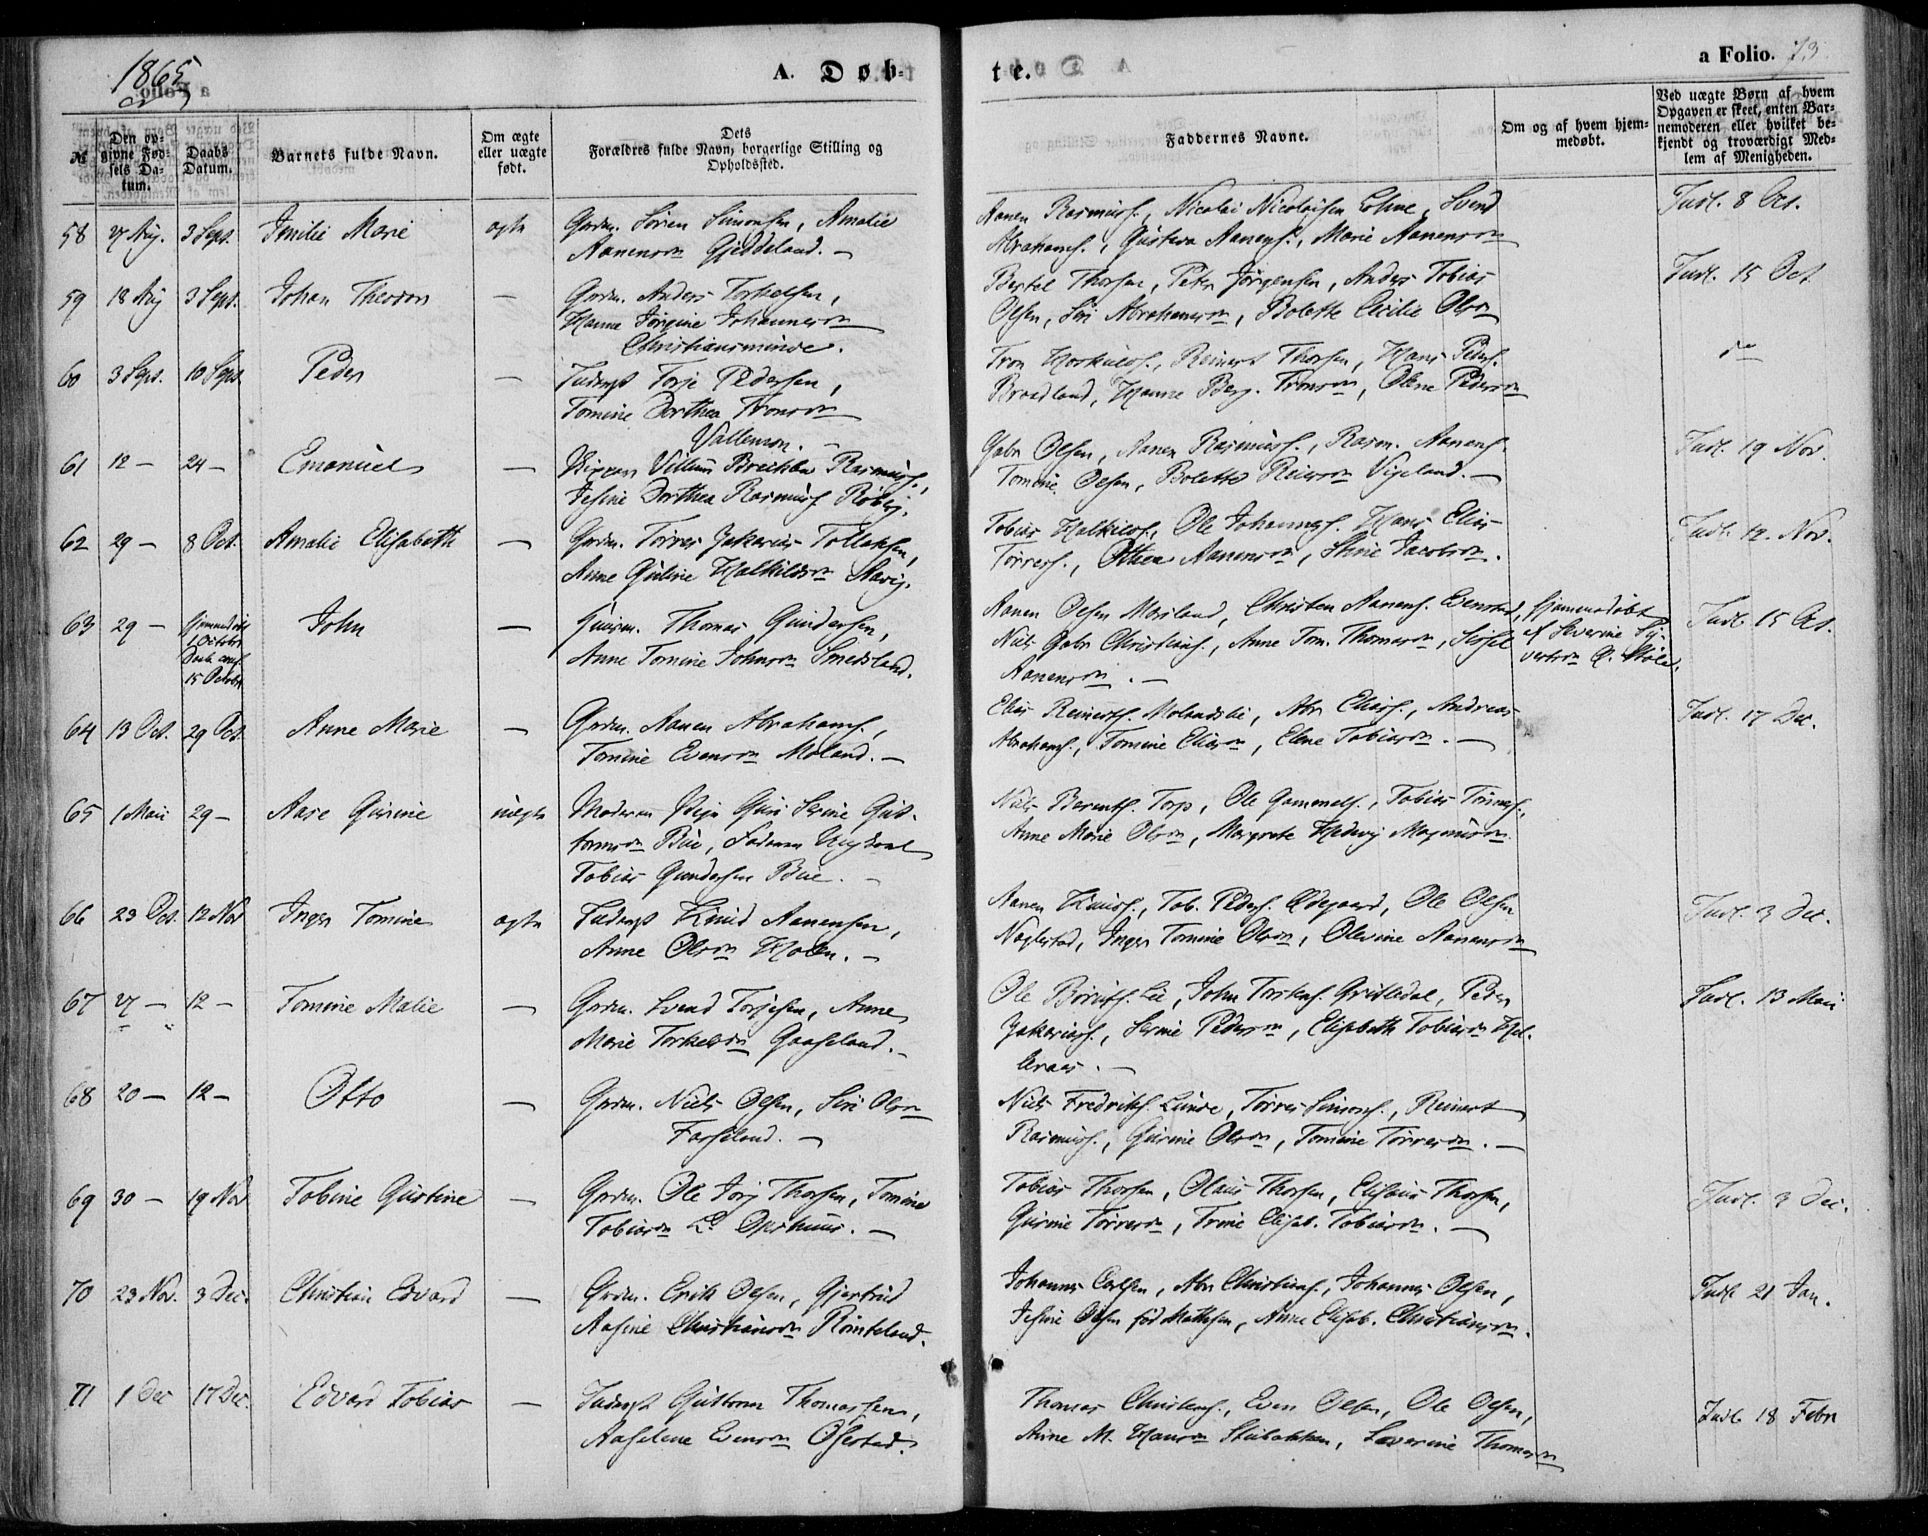 1865
A. Døb-
te.
a Folio. 73
№
Den op-
givne Fød-
sels Da-
tum.
Daabs
Datum.
Barnets fulde Navn.
Om ægte
eller uægte
født.
Dets
Forældres fulde Navn, borgerlige Stilling og
Opholdssted.
Faddernes Navne.
Om og af hvem hjem-
medøbt.
Ved uægte Børn af hvem
Opgaven er skeet, enten Bar-
nemoderen eller hvilket be-
kjendt og troværdigt Med-
lem af Menigheden.
58 27 Aug. 3 Sept. Emilie Marie ægte Grdm. Søren Simonsen, Amalie
Aanensen Gjeddeland. —
Aanen Rasmuss., Nicolai Nicolaisen Lohne, Svend
Abrahams., Gustava Aanens., Marie Aanensdn
Indl. 8 Oct.
59 18 Aug 3 Sept. Johan Theodor — Grdm. Anders Torkelsen,
Hanne Jørgine Johannesdn
Christiansminde.
Bertel Thorsen, Peter Jørgensen, Anders Tobias
Olsen, Siri Abrahamsdn, Bolette Cecilie Olsdn
Indl. 15 Oct.
60 3 Sept. 10 Sept. Peder — Inderst Torje Pedersen,
Tomine Dorthea Tronsdn
Vallemon.
Tron Hoskulds., Reinert Thorsen, Hans Peders.
Broadland, Hanne Berg. Tronsdn, Olene Pedersdn
do
61 12 — 24 — Emanuel — Skipper Villum Rasmuss.,
Jesine Dorthea Rasmuss.
Gabr Olsen, Aanen Rasmuss., Rasm. Aanens.
Tomine Olsen, Bolette Reiersdn Vigeland. —
Indl. 19 Nov.
62 29 — 8 Oct. Amalie Elisabeth — Grdm. Tørres Zakarias Tollaksen,
Anne Guline Halkildsdn
Tobias Halkilds., Ole Johanness. Hans Elias
Tørress., Othea Aanensdn, Stine Jacobsdn.
Indl. 12. Nov.
63 29 — Hjemmedøbt
1 October
Daab conf.
15 October
John — Huusm. Thomas Gundersen,
Anne Tomine Johnsdn Smedsland.
Aanen Olsen Mosland, Christen Aanens. Evensted,
Niels Gabr Christians., Anne Tom. Thomasdn, Sissel
Aanensdn. —
Hjemmedøbt
af Severine Sy-
vertsdn
Indl. 15 Oct.
64 13 Oct. 29 Oct. Anne Marie — Grdm. Aanen Abrahams.,
Tomine Evensdn Moland. —
Elias Reinerts. Molandslie, Abr Elias., Andreas
Abrahams., Tomine Eliasdn, Elene Tobiasdn. —
Indl. 17 Dec.
65 1 Mai 29 — Aase Gurine uægte Moderen Pige Guri Serine Gut-
tormsdn Bue, Faderen Ungkarl
Tobias Gundersen Bue. —
Niels Berents. Torp, Ole Gammels., Tobias Tønness.,
Anne Marie Olsdn, Margrete Hedevig Magnusdn.
66 23 Oct. 12 Nov Inger Tomine ægte Inderst Knud Aanensen,
Anne Olsdn Holen. —
Aanen Knuds., Tob. Peders. Ødegaard, Ole Olsen
Naglestad, Inger Tomine Olsdn, Olevine Aanensdn
Indl. 3 Dec.
67 27 — 12 — Tomine Malie — Grdm. Svend Torjesen, Anne
Marie Torkelsdn Gaaseland. —
Ole Lie, John Torkels. Grisledal, Peder
Zakarias., Serine Pedersdn, Elisabeth Tobiasdn Hel-
leraas. —
Indl. 13 Mai
68 20 — 12 — Otto — Grdm. Niels Olsen, Siri Olsdn
Faaseland. —
Niels Fredriks. Lunde, Tørres Simons., Reinert
Rasmuss., Gurine Olsdn, Tomine Tørresdn. —
69 30 — 19 Nov Tobine Gustine — Grdm. Ole Torj Thorsen, Tomine
Tobiasdn L. Opshuus. —
Tobias Thorsen, Olaus Thorsen, Elisæus Thorsen,
Gurine Tørresdn, Trine Elisab. Tobiasdn. —
Indl. 3 Dec.
70 23 Nov. 3 Dec. Christian Edvard — Grdm. Erik Olsen, Gjertrud
Aasine Christiansdn Rønteland.
Johannes Carlsen, Abr Christians., Johannes Olsen,
Jesine Olsen fød Mathisen, Anne Elisab. Christiansdn.
Indl 21 Jan.
71 1 Dec 17 Dec. Edvard Tobias — Inderst Guttorm Thomassen,
Aaselene Evensdn Øfsted.
Thomas Christens., Even Olsen, Ole Olsen,
Anne M. Hansdn Stubakken, Severine Thomasdn
Indl 18 Febr